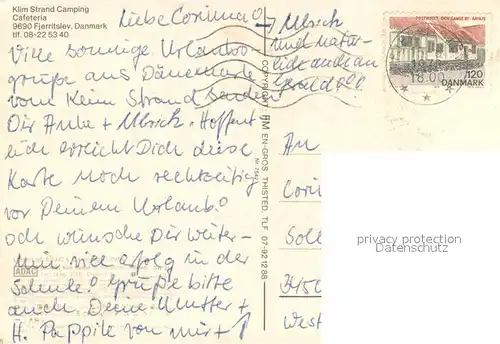 Klim Strand Camping
Cafeteria
9690 Fjerritslev, Danmark
tlf. 08-22 53 40
Liebe Corinna
Viele sonnige Urlaubs-
grüße aus Dänemark
vom Klim Strand senden
Dir Anke + Ulrich. Hoffent-
lich erreicht Dich diese
Karte noch rechtzeitig
vor Deinem Urlaub!
Ich wünsche Dir weiter-
hin viel erfolg in der
Schule! Grüße bitte
auch Deine Mutter +
H. Pappile von mir +
ADAC
→ Ulrich
und natür-
lich auch an
COPYRIGHT HM EN-GROS THISTED TLF 07-92 12 88
POSTHUSET · DEN GAMLE BY · ÅRHUS
120
DANMARK
18.00
An
Corin
Soll
3450
West
privacy protection
watermark